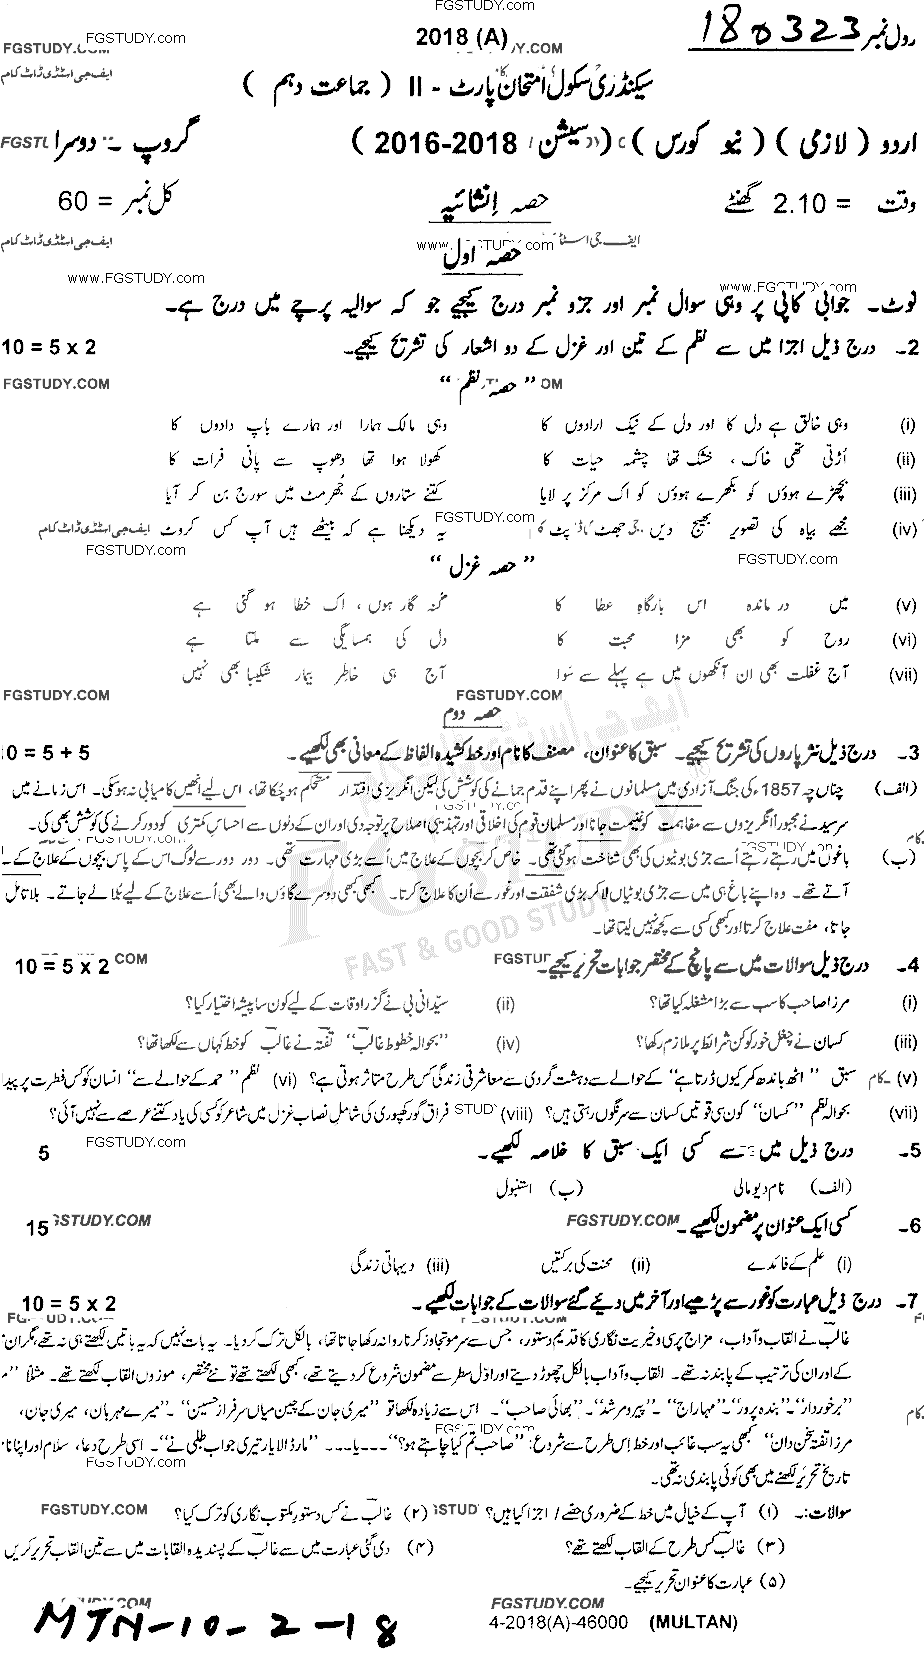 FGSTUDY.COM
FGSTUDY.com
رول نمبر 180323
2018 (A)
FGSTUDY.COM
ایف جی اسٹڈی ڈاٹ کام
سیکنڈری سکول امتحان پارٹ - II ( جماعت دہم )
اردو ( لازمی ) ( نیو کورس ) ( سیشن 2016-2018 ) گروپ - دوسرا
وقت = 2.10 گھنٹے حصہ انشائیہ کل نمبر = 60
حصہ اول
www.FGSTUDY.com
نوٹ۔ جوابی کاپی پر وہی سوال نمبر اور جزو نمبر درج کیجیے جو کہ سوالیہ پرچے میں درج ہے۔
2۔ درج ذیل اجزا میں سے نظم کے تین اور غزل کے دو اشعار کی تشریح کیجیے۔ 10 = 5 x 2
FGSTUDY.COM
" حصہ نظم "
(i) وہی خالق ہے دل کا اور دل کے نیک ارادوں کا وہی مالک ہمارا اور ہمارے باپ دادوں کا
(ii) اُڑتی تھی خاک، خشک تھا چشمہ حیات کا کھولا ہوا تھا دھوپ سے پانی فرات کا
(iii) بچھڑے ہوؤں کو بکھرے ہوؤں کو اک مرکز پر لایا کتنے ستاروں کے جُھرمٹ میں سورج بن کر آیا
(iv) مجھے بیاہ کی تصویر بھیج دیں جھٹ پٹ یہ دیکھنا ہے کہ بیٹھے ہیں آپ کس کروٹ
FGSTUDY.COM
" حصہ غزل "
(v) میں درماندہ اس بارگاہِ عطا کا گنہ گار ہوں، اک خطا ہو گئی ہے
(vi) روح کو بھی مزا محبت کا دل کی ہمسایگی سے ملتا ہے
(vii) آج غفلت بھی ان آنکھوں میں ہے پہلے سے سوا آج ہی خاطرِ بیمار شکیبا بھی نہیں
FGSTUDY.COM
حصہ دوم
3۔ درج ذیل نثر پاروں کی تشریح کیجیے۔ سبق کا عنوان، مصنف کا نام اور خط کشیدہ الفاظ کے معانی بھی لکھیے۔ 0 = 5 + 5
(الف) چناں چہ 1857ء کی جنگ آزادی میں مسلمانوں نے پھر اپنے قدم جمانے کی کوشش کی لیکن انگریزی اقتدار مستحکم ہو چکا تھا، اس لیے انھیں کامیابی نہ ہو سکی۔ اس زمانے میں
سرسید نے مجبوراً انگریزوں سے مفاہمت کو غنیمت جانا اور مسلمان قوم کی اخلاقی اور تہذیبی اصلاح پر توجہ دی اور ان کے دلوں سے احساسِ کمتری کو دور کرنے کی کوشش بھی کی۔
(ب) باغوں میں رہتے رہتے اُسے جڑی بوٹیوں کی بھی شناخت ہو گئی تھی۔ خاص کر بچوں کے علاج میں اُسے بڑی مہارت تھی۔ دور دور سے لوگ اس کے پاس بچوں کے علاج کے لیے
آتے تھے۔ وہ اپنے باغ ہی میں سے جڑی بوٹیاں لا کر بڑی شفقت اور غور سے اُن کا علاج کرتا۔ کبھی کبھی دوسرے گاؤں والے بھی اُسے علاج کے لیے بُلا لے جاتے۔ بلا تامل
جاتا، مفت علاج کرتا اور کبھی کسی سے کچھ نہیں لیتا تھا۔
FAST & GOOD STUDY
4۔ درج ذیل سوالات میں سے پانچ کے مختصر جوابات تحریر کیجیے۔ 10 = 5 x 2
(i) مرزا صاحب کا سب سے بڑا مشغلہ کیا تھا؟ (ii) سیّدانی بی نے گزر اوقات کے لیے کون سا پیشہ اختیار کیا؟
(iii) کسان نے چغل خور کو کن شرائط پر ملازم رکھا؟ (iv) "بحوالہ خطوطِ غالب" تفتہ نے غالب کو خط کہاں سے لکھا تھا؟
(v) سبق " اٹھ باندھ کمر کیوں ڈرتا ہے" کے حوالے سے دہشت گردی سے معاشرتی زندگی کس طرح متاثر ہوتی ہے؟ (vi) نظم " حمد کے حوالے سے" انسان کو کس فطرت پر پیدا
(vii) بحوالہ نظم "کسان" کون سی قوتیں کسان سے سرنگوں رہتی ہیں؟ (viii) فراق گورکھپوری کی شاملِ نصاب غزل میں شاعر کو کسی کی یاد کتنے عرصے سے نہیں آئی؟
FGSTUDY.com
5۔ درج ذیل میں سے کسی ایک سبق کا خلاصہ لکھیے۔ 5
(الف) نام دیو مالی (ب) استنبول
6۔ کسی ایک عنوان پر مضمون لکھیے۔ 15
FGSTUDY.COM
(i) علم کے فائدے (ii) محنت کی برکتیں (iii) دیہاتی زندگی
7۔ درج ذیل عبارت کو غور سے پڑھیے اور آخر میں دیے گئے سوالات کے جوابات لکھیے۔ 10 = 5 x 2
غالب نے القاب و آداب، مزاج پرسی و خیریت نگاری کا قدیم دستور، جس سے سرمو تجاوز کرنا روا نہ رکھا جاتا تھا، بالکل ترک کر دیا۔ یہ بات نہیں کہ یہ باتیں لکھتے ہی نہ تھے، مگر ان
کے اور ان کی ترتیب کے پابند نہ تھے۔ القاب و آداب بالکل چھوڑ دیتے اور اوّل سطر سے مضمون شروع کر دیتے تھے، کبھی لکھتے تھے تو نئے مختصر، موزوں القاب لکھتے تھے۔ مثلاً "
"برخوردار"۔ "بندہ پرور"۔ "مہاراج"۔ "پیر و مرشد"۔ "بھائی صاحب"۔ اس سے زیادہ لکھا تو "میری جان کے چین میاں سرفراز حسین"۔ "میرے مہربان، میری جان،
مرزا تفتہ سخن دان" کبھی یہ سب غائب اور خط اِس طرح سے شروع: "صاحب تم کیا چاہتے ہو؟" ۔۔۔ یا ۔۔۔ "مار ڈالا یار تیری جواب طلبی نے"۔ اسی طرح دعا، سلام اور اپنا نام
تاریخ تحریر لکھنے میں بھی کوئی پابندی نہ تھی۔
سوالات:۔ (۱) آپ کے خیال میں خط کے ضروری حصے / اجزا کیا ہیں؟ (۲) غالب نے کس دستورِ مکتوب نگاری کو ترک کیا؟
(۳) غالب کس طرح کے القاب لکھتے تھے؟ (۴) دی گئی عبارت میں سے غالب کے پسندیدہ القابات میں سے تین القاب تحریر کریں
(۵) عبارت کا عنوان تحریر کیجیے۔
FGSTUDY.COM
4-2018(A)-46000 (MULTAN)
MTN-10-2-18